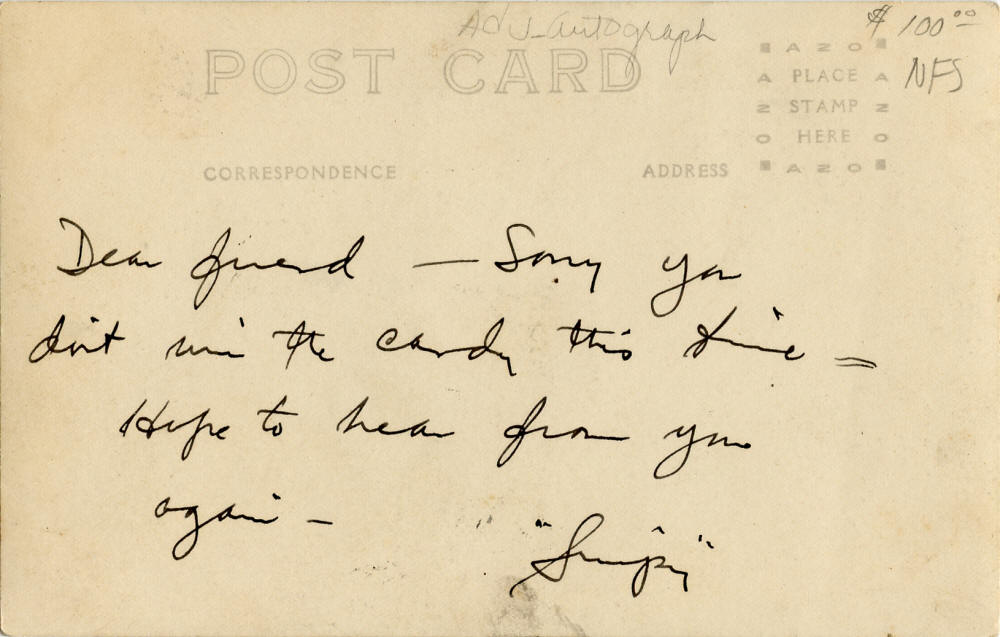 Adv-autograph $100.00
POST CARD NFS
A Z O
A PLACE A
Z STAMP Z
O HERE O
A Z O
CORRESPONDENCE ADDRESS
Dear friend — Sorry you
don't win the candy this time =
Hope to hear from you
again —